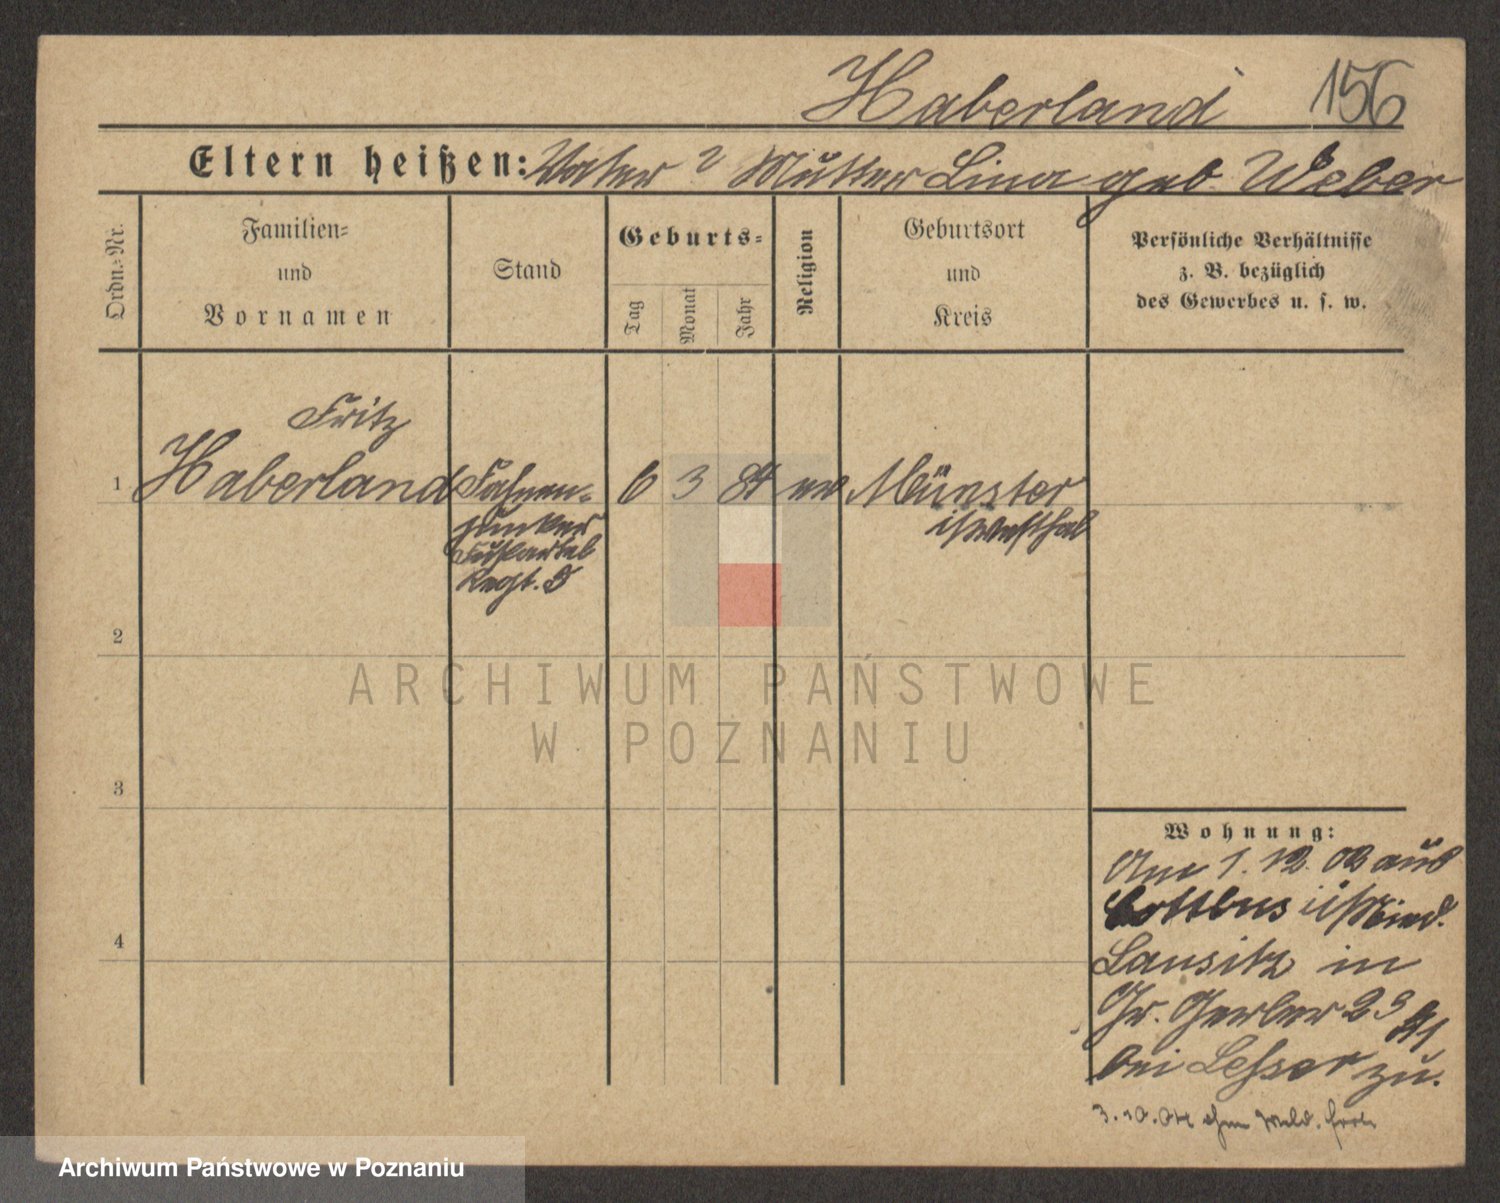 Haberland 156
Eltern heißen: Vater ? Mutter Lina geb. Weber
Ordn.-Nr.
Familien-
und
Vornamen
Stand
Geburts-
Tag
Monat
Jahr
Religion
Geburtsort
und
Kreis
Persönliche Verhältnisse
z. B. bezüglich
des Gewerbes u. s. w.
Fritz
1 Haberland Fahnen- 6 3 84 ev Münster
junker i/Westfal
Fußartel
Regt. 5
2
3
4
ARCHIWUM PAŃSTWOWE
W POZNANIU
Wohnung:
Am 1. 12. 02 aus
Cottbus i/Nied.
Lausitz in
Gr. Gerber 23
bei Lesser zu.
3.10.04 ohne Meld. fort
Archiwum Państwowe w Poznaniu